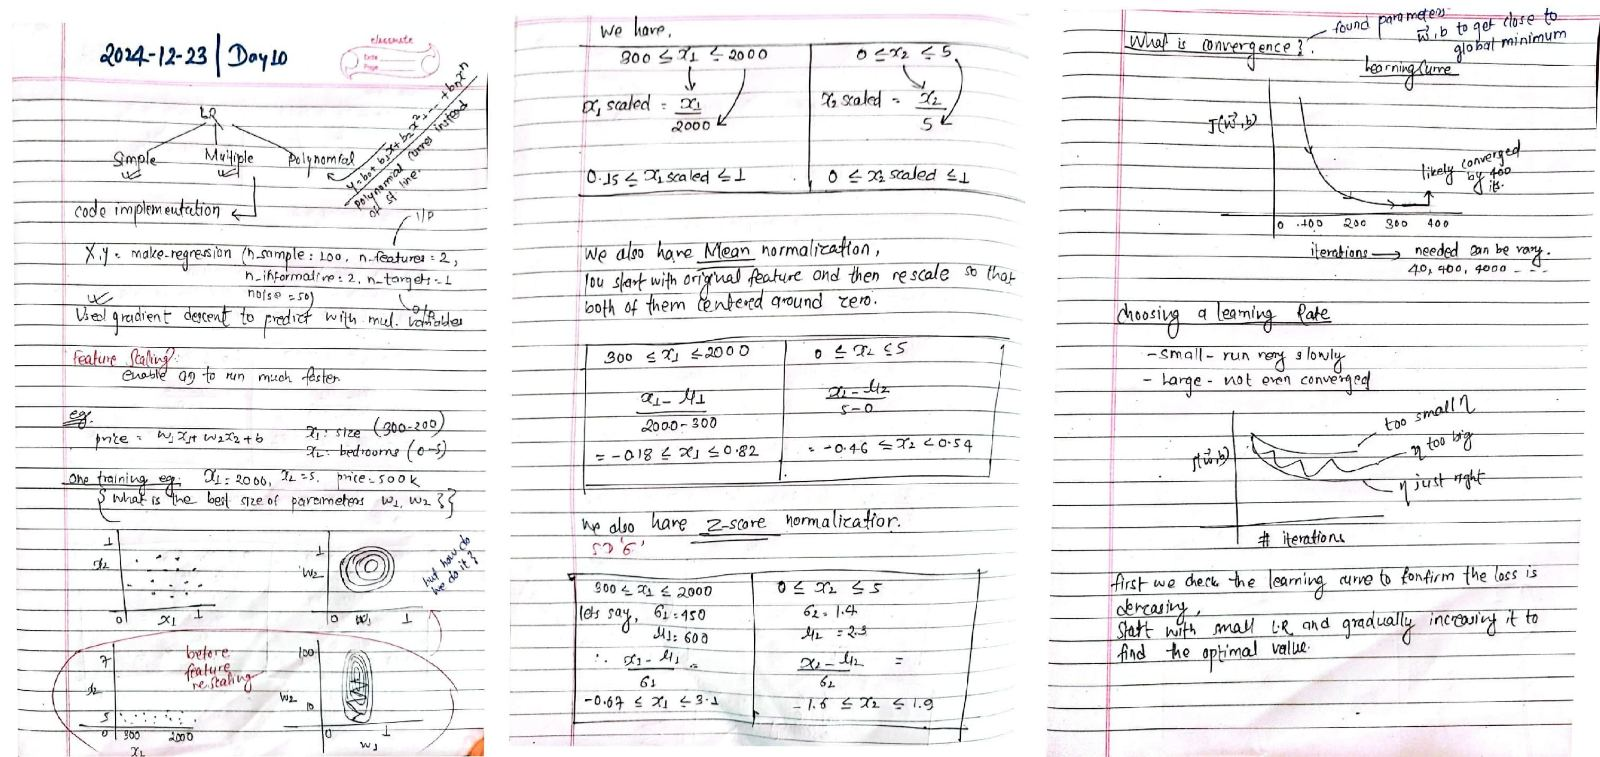 2024-12-23 | Day 10
classmate
Date
Page
LR
Simple Multiple Polynomial
y = b0 + b1x + b2x² + ... + bnxⁿ
polynomial curves instead
of st line.
code implementation
i/p
X, y = make-regression (n_sample = 100, n-features = 2,
n_informative = 2, n-targets = 1
noise = 50)
o/p
Used gradient descent to predict with mul. variables
Feature Scaling:
enable gg to run much faster
eg.
price = w1x1 + w2x2 + b
x1: size (300-200)
x2: bedrooms (0-5)
one training eg: x1 = 2000, x2 = 5, price = 500k
{ what is the best size of parameters w1, w2 }
1
x2
0 x1 1
1
w2
0 w1 1
but how do
we do it?
before
feature
rescaling
x2
5
0 300 2000
x1
100
w2
10
0 1
w1
we have,
300 ≤ x1 ≤ 2000
0 ≤ x2 ≤ 5,
x1 scaled = x1
2000
x2 scaled = x2
5
0.15 ≤ x1 scaled ≤ 1
0 ≤ x2 scaled ≤ 1
we also have Mean normalization,
You start with original feature and then rescale so that
both of them centered around zero.
300 ≤ x1 ≤ 2000
0 ≤ x2 ≤ 5
x1 - μ1
2000-300
x2 - μ2
5-0
= -0.18 ≤ x1 ≤ 0.82
= -0.46 ≤ x2 ≤ 0.54
we also have Z-score normalization.
SD 'σ'
300 ≤ x1 ≤ 2000
0 ≤ x2 ≤ 5
lets say, σ1 = 450
μ1 = 600
σ2 = 1.4
μ2 = 2.3
∴ x1 - μ1 =
σ1
x2 - μ2 =
σ2
-0.67 ≤ x1 ≤ 3.1
-1.6 ≤ x2 ≤ 1.9
What is convergence?
found parameters
w⃗, b to get close to
global minimum
Learning Curve
J(w⃗, b)
likely converged
by 400
its.
0 100 200 300 400
iterations → needed can be vary.
40, 400, 4000 - -
choosing a learning Rate
- small - run very slowly
- Large - not even converged
J(w⃗, b)
too small η
η too big
η just right
# iterations
first we check the learning curve to confirm the loss is
decreasing,
Start with small L.R and gradually increasing it to
find the optimal value.